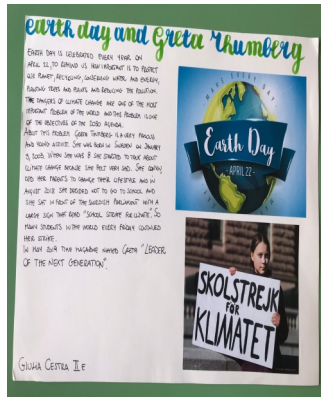 earth day and Greta Thumberg
EARTH DAY IS CELEBRATED EVERY YEAR ON
APRIL 22, TO REMIND US HOW IMPORTANT IS TO PROTECT
OUR PLANET, RECYCLING, CONSERVING WATER AND ENERGY,
PLANTING TREES AND PLANTS, AND REDUCING THE POLLUTION.
THE DANGERS OF CLIMATE CHANGE ARE ONE OF THE MOST
IMPORTANT PROBLEM OF THE WORLD AND THIS PROBLEM IS ONE
OF THE OBJECTIVES OF THE 2030 AGENDA.
ABOUT THIS PROBLEM GRETA THUMBERG IS A VERY FAMOUS
AND YOUNG ACTIVIST. SHE WAS BORN IN SWEDEN ON JANUARY
3, 2003. WHEN SHE WAS 8 SHE STARTED TO TALK ABOUT
CLIMATE CHANGE BECAUSE SHE FELT VERY SAD. SHE CONVIN
CED HER PARENTS TO CHANGE THEIR LIFESTYLE AND IN
AUGUST 2018 SHE DECIDED NOT TO GO TO SCHOOL AND
SHE SAT IN FRONT OF THE SWEDISH PARLIAMENT WITH A
LARGE SIGN THAT READ "SCHOOL STRIKE FOR CLIMATE". SO
MANY STUDENTS IN THE WORLD EVERY FRIDAY CONTINUED
HER STRIKE.
IN MAY 2019 TIME MAGAZINE NAMED GRETA "LEADER
OF THE NEXT GENERATION".
GIULIA CESTRA II E
MAKE EVERY DAY
Earth Day
- APRIL 22 -
SKOLSTREJK
FÖR
KLIMATET